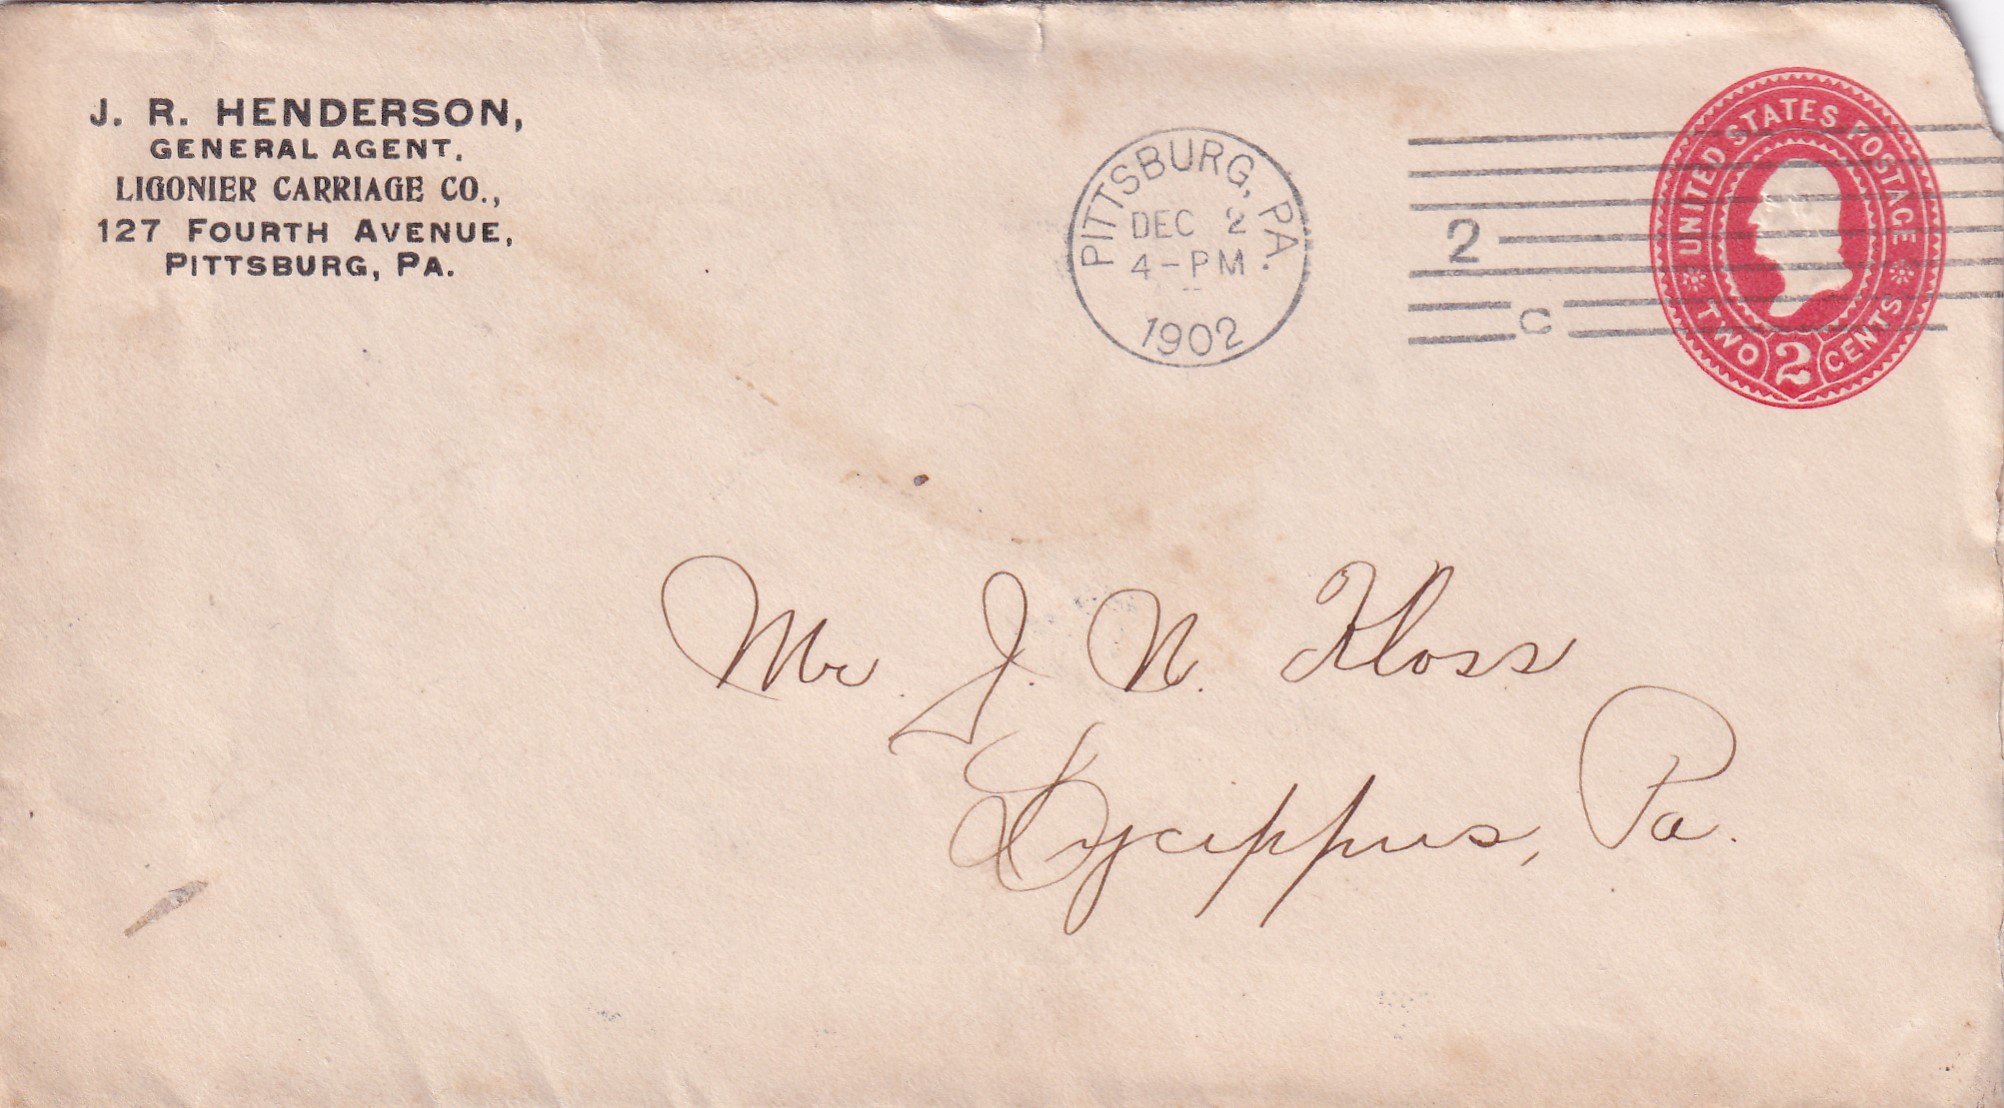 J. R. HENDERSON,
GENERAL AGENT,
LIGONIER CARRIAGE CO.,
127 FOURTH AVENUE,
PITTSBURG, PA.
PITTSBURG, PA.
DEC 2
4-PM
1902
2
C
UNITED STATES POSTAGE
TWO 2 CENTS
Mr. J. N. Kloss
Lycippus, Pa.